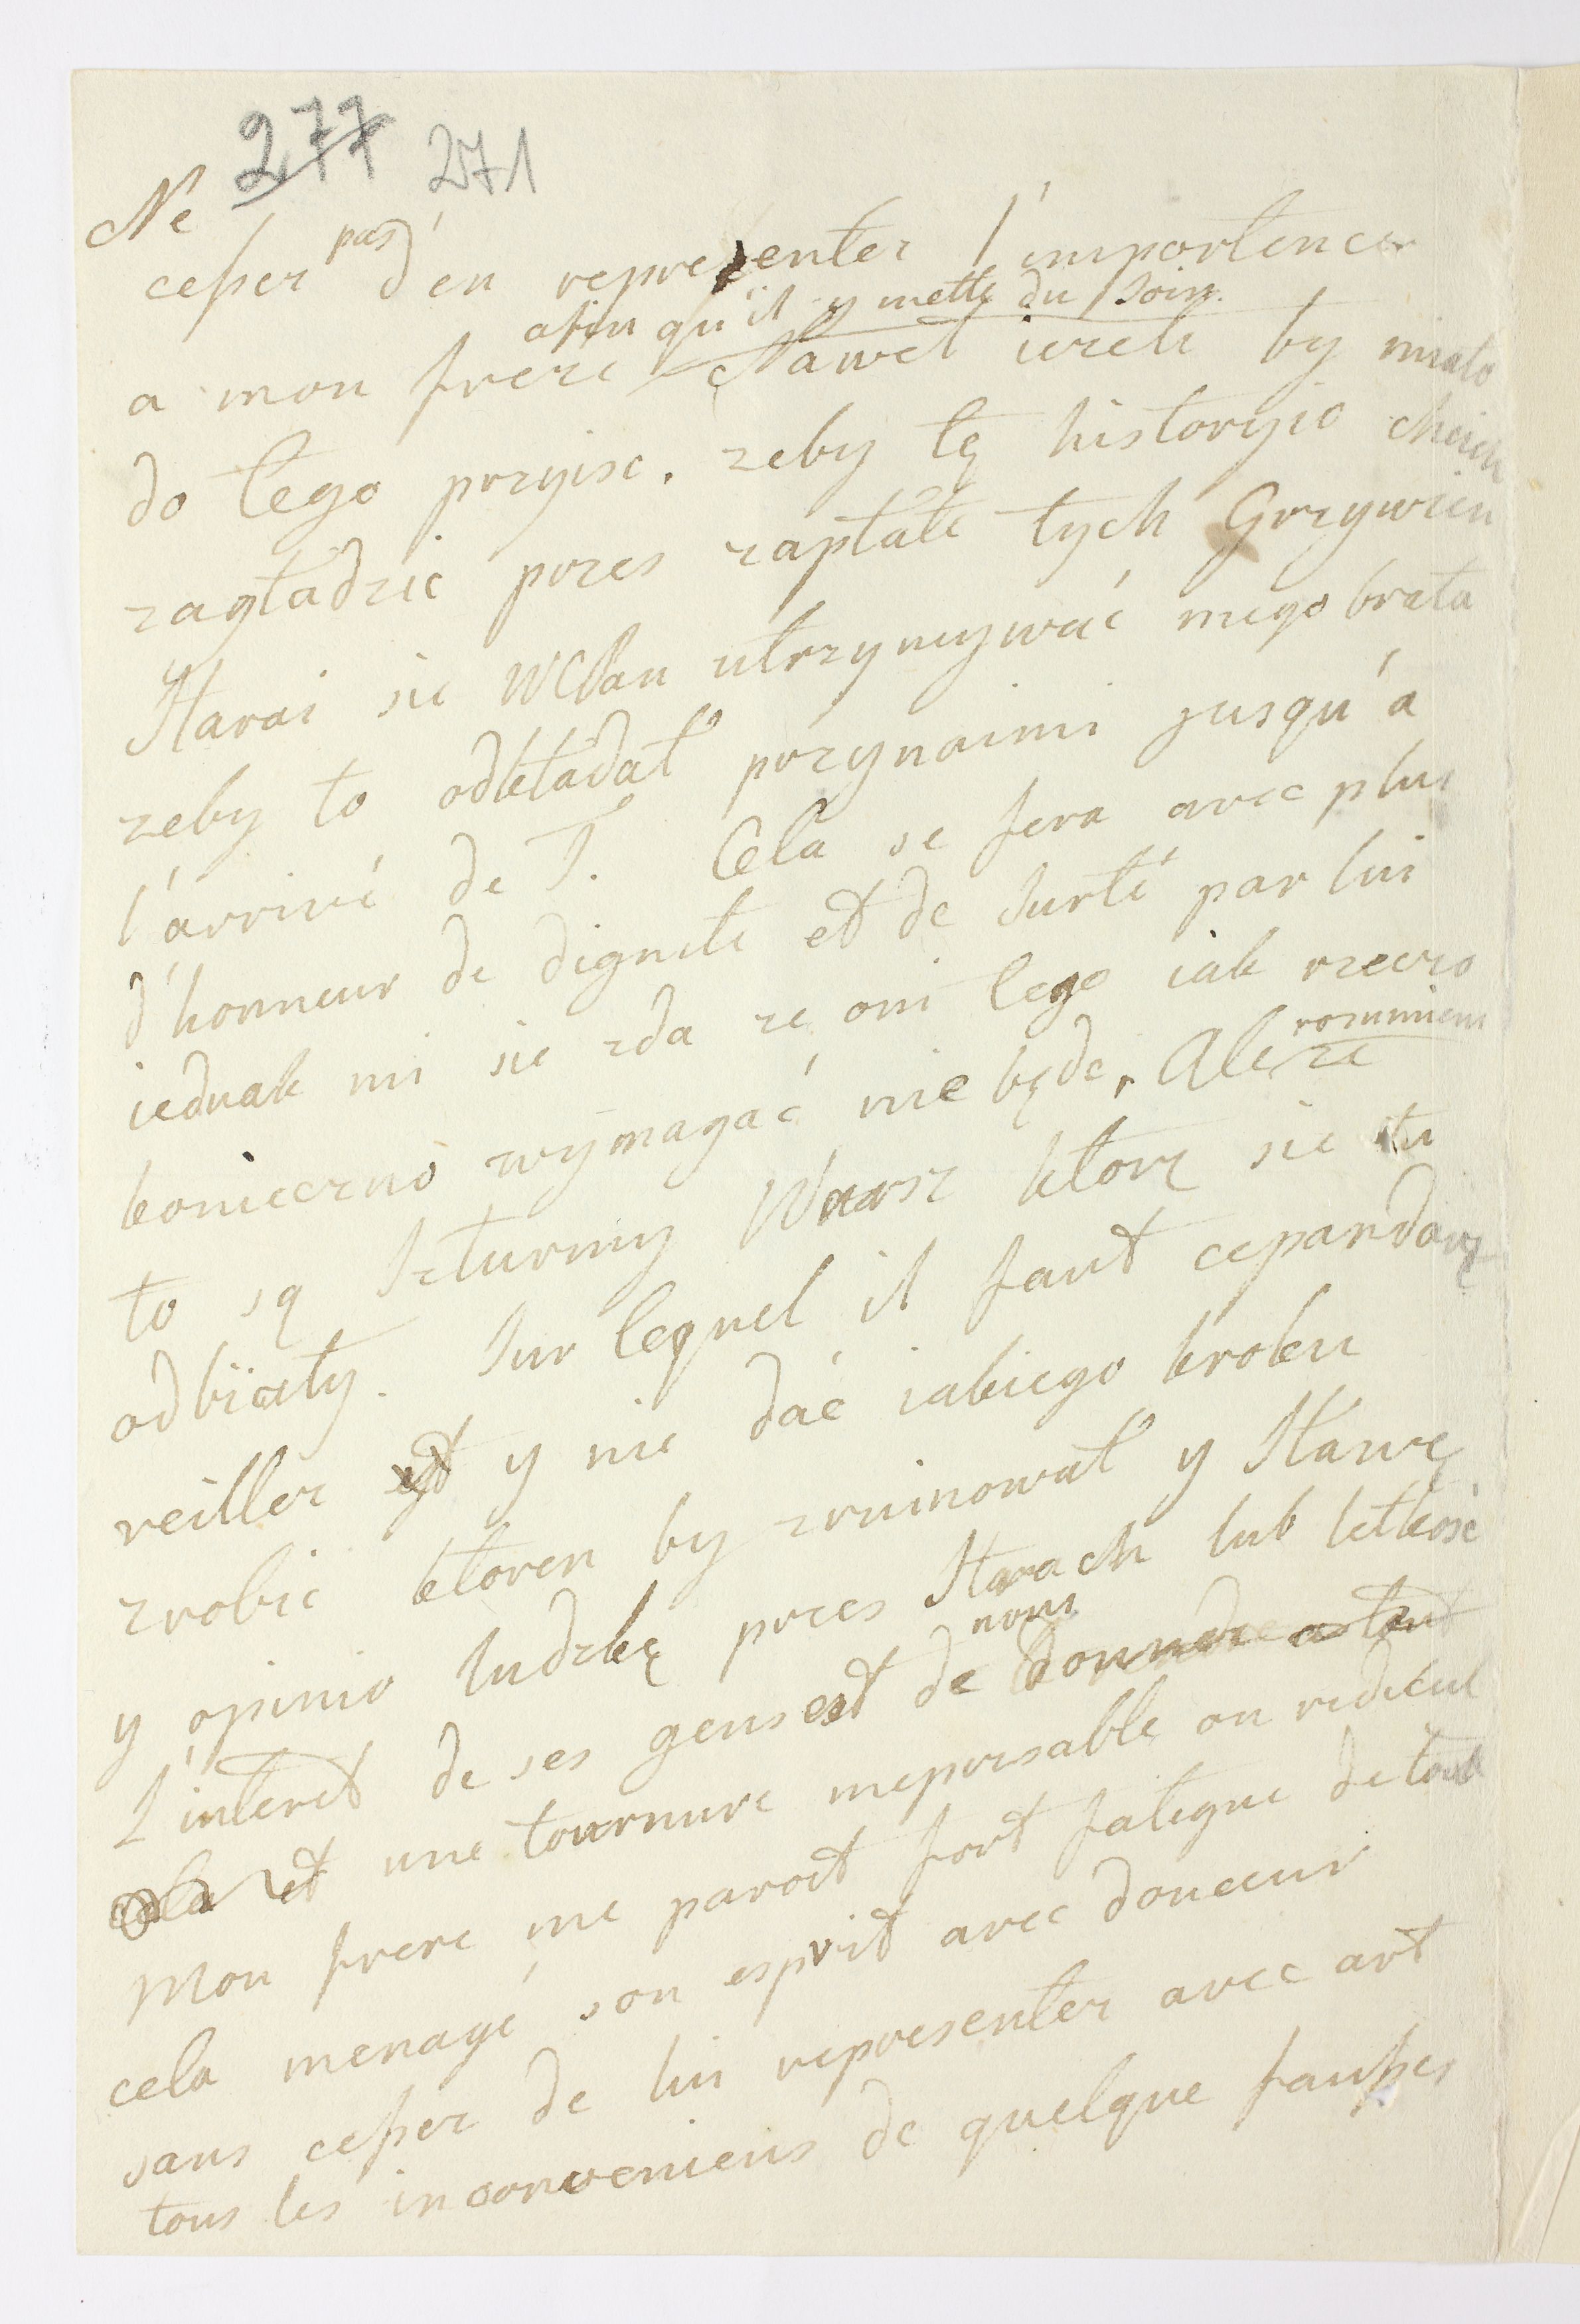 277 271
Ne
cesser pas d'en reprezenter l'importence
afin qu'il y mette du soin.
a mon frere Nawet iezeli by miało
do tego przyisc. zeby tę historyio chcieli
zagładzic przes zapłate tych Grzywien
Staraj sie WCPan utrzymywać mego brata
zeby to odkładał przynaimi jusqu'a
l'arrivé de T. Cela se fera avec plus
d'honneur de dignite et de surté par lui
iednak mi sie zda ze oni tego iak rzecz
konieczno wymagać nie będo. Ale rozumiem ze
to są szturmy Warsz ktorę sie tu
odbiiały. Sur lequel il faut cepandant
veiller y nie dać iakiego kroku
zrobic ktoren by zruinował y Sławę
y opinio ludzkę przes Strach lub letkość
L'interet de ses gens est de nous donner
et une tournure meprisable ou ridicul
Mon frere me paroit fort fatigue de tout
cela menagé son esprit avec douceur
sans cesser de lui representer avec art
tous les inconveniens de quelque fausses